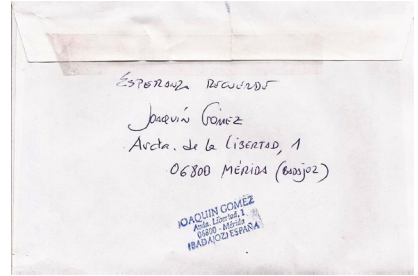 ESPERANZA RECUERDE
JOAQUÍN GÓMEZ
Avda. de la LIBERTAD, 1
06800 MÉRIDA (BADAJOZ)
JOAQUIN GOMEZ
Avda. Libertad, 1
06800 - Mérida
(BADAJOZ) ESPAÑA